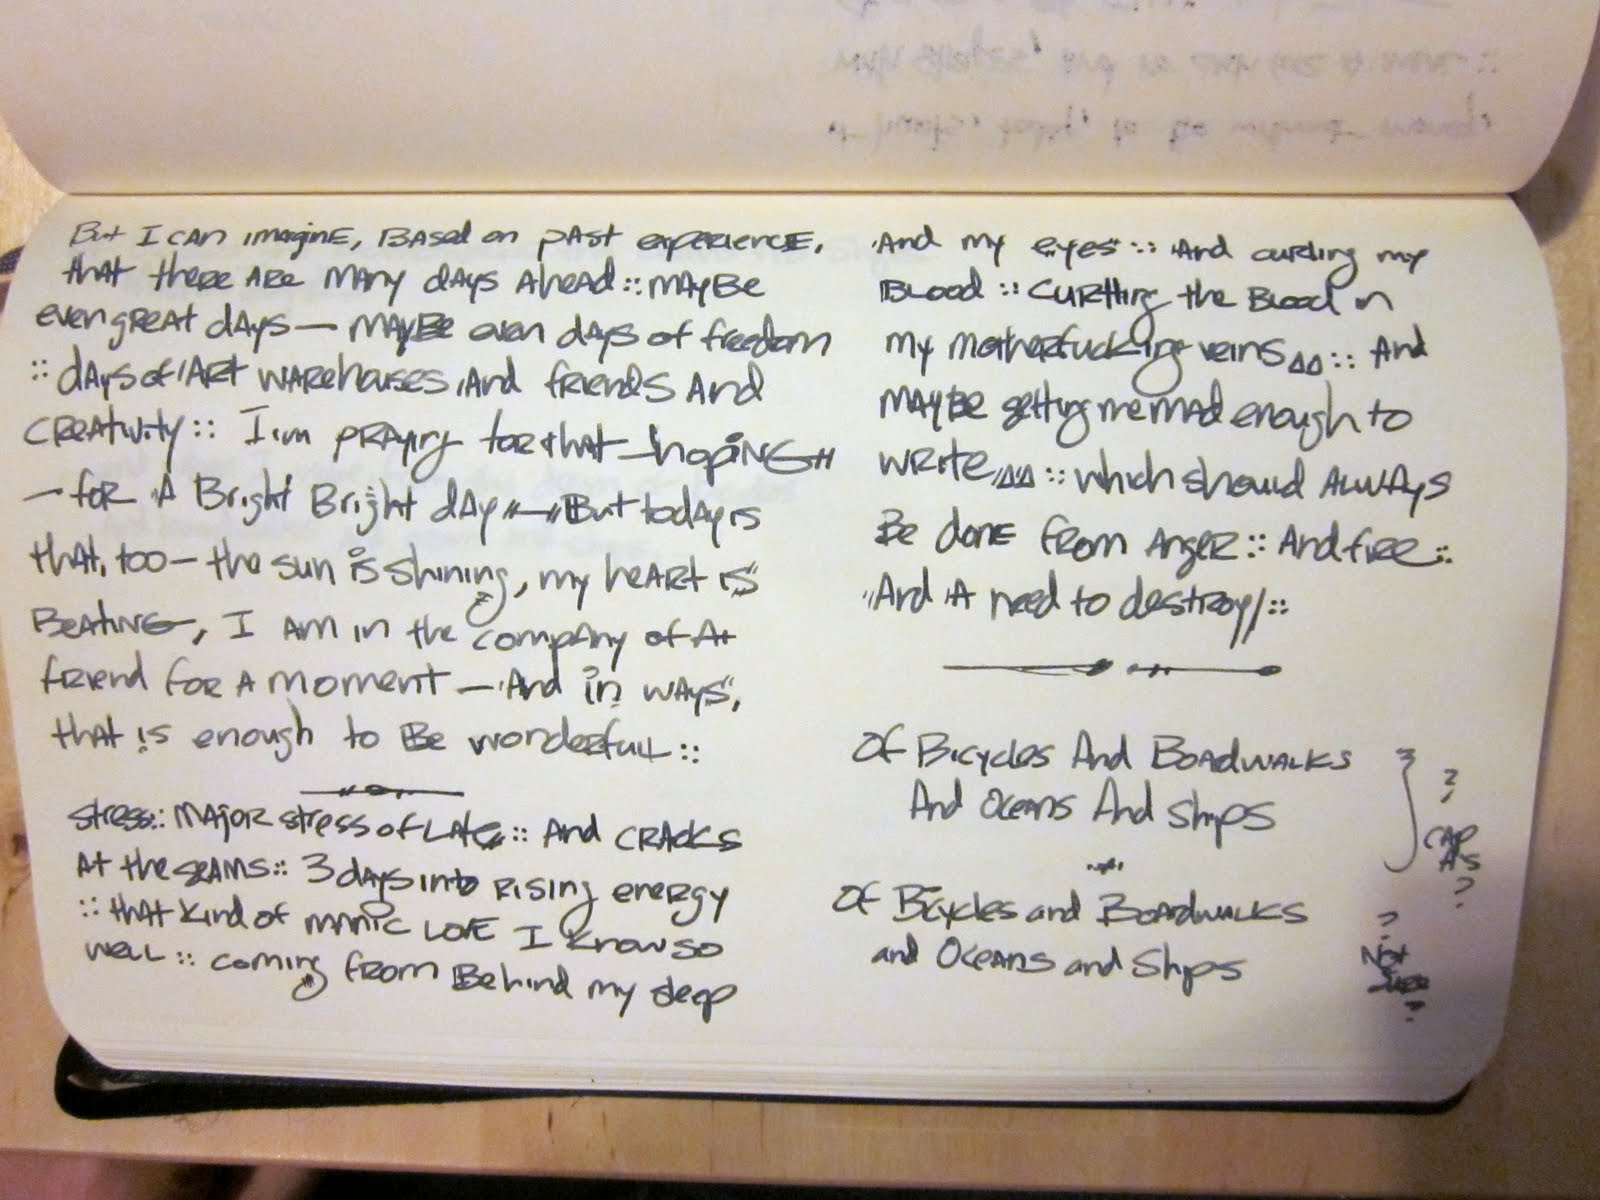 But I can imagine, Based on past experience,
that there are many days ahead :: maybe
even great days — maybe even days of freedom
:: days of Art warehouses And friends And
creativity :: I'm praying for that — hoping
— for A Bright Bright day — But today is
that, too — the sun is shining, my heart is
Beating, I am in the company of A
friend for a moment — And in ways,
that is enough to Be wonderfull ::
stress :: Major stress of Late :: And cracks
At the seams :: 3 days into rising energy
:: that kind of manic Love I know so
well :: coming from Behind my sleep
And my eyes :: And curling my
Blood :: curtling the Blood in
my motherfucking veins :: And
maybe getting me mad enough to
write :: which should Always
Be done from Anger :: And fire ::
And A need to destroy/ ::
Of Bicycles And Boardwalks
And Oceans And Ships
? CAP A's ?
Of Bicycles and Boardwalks
and Oceans and Ships
? Not